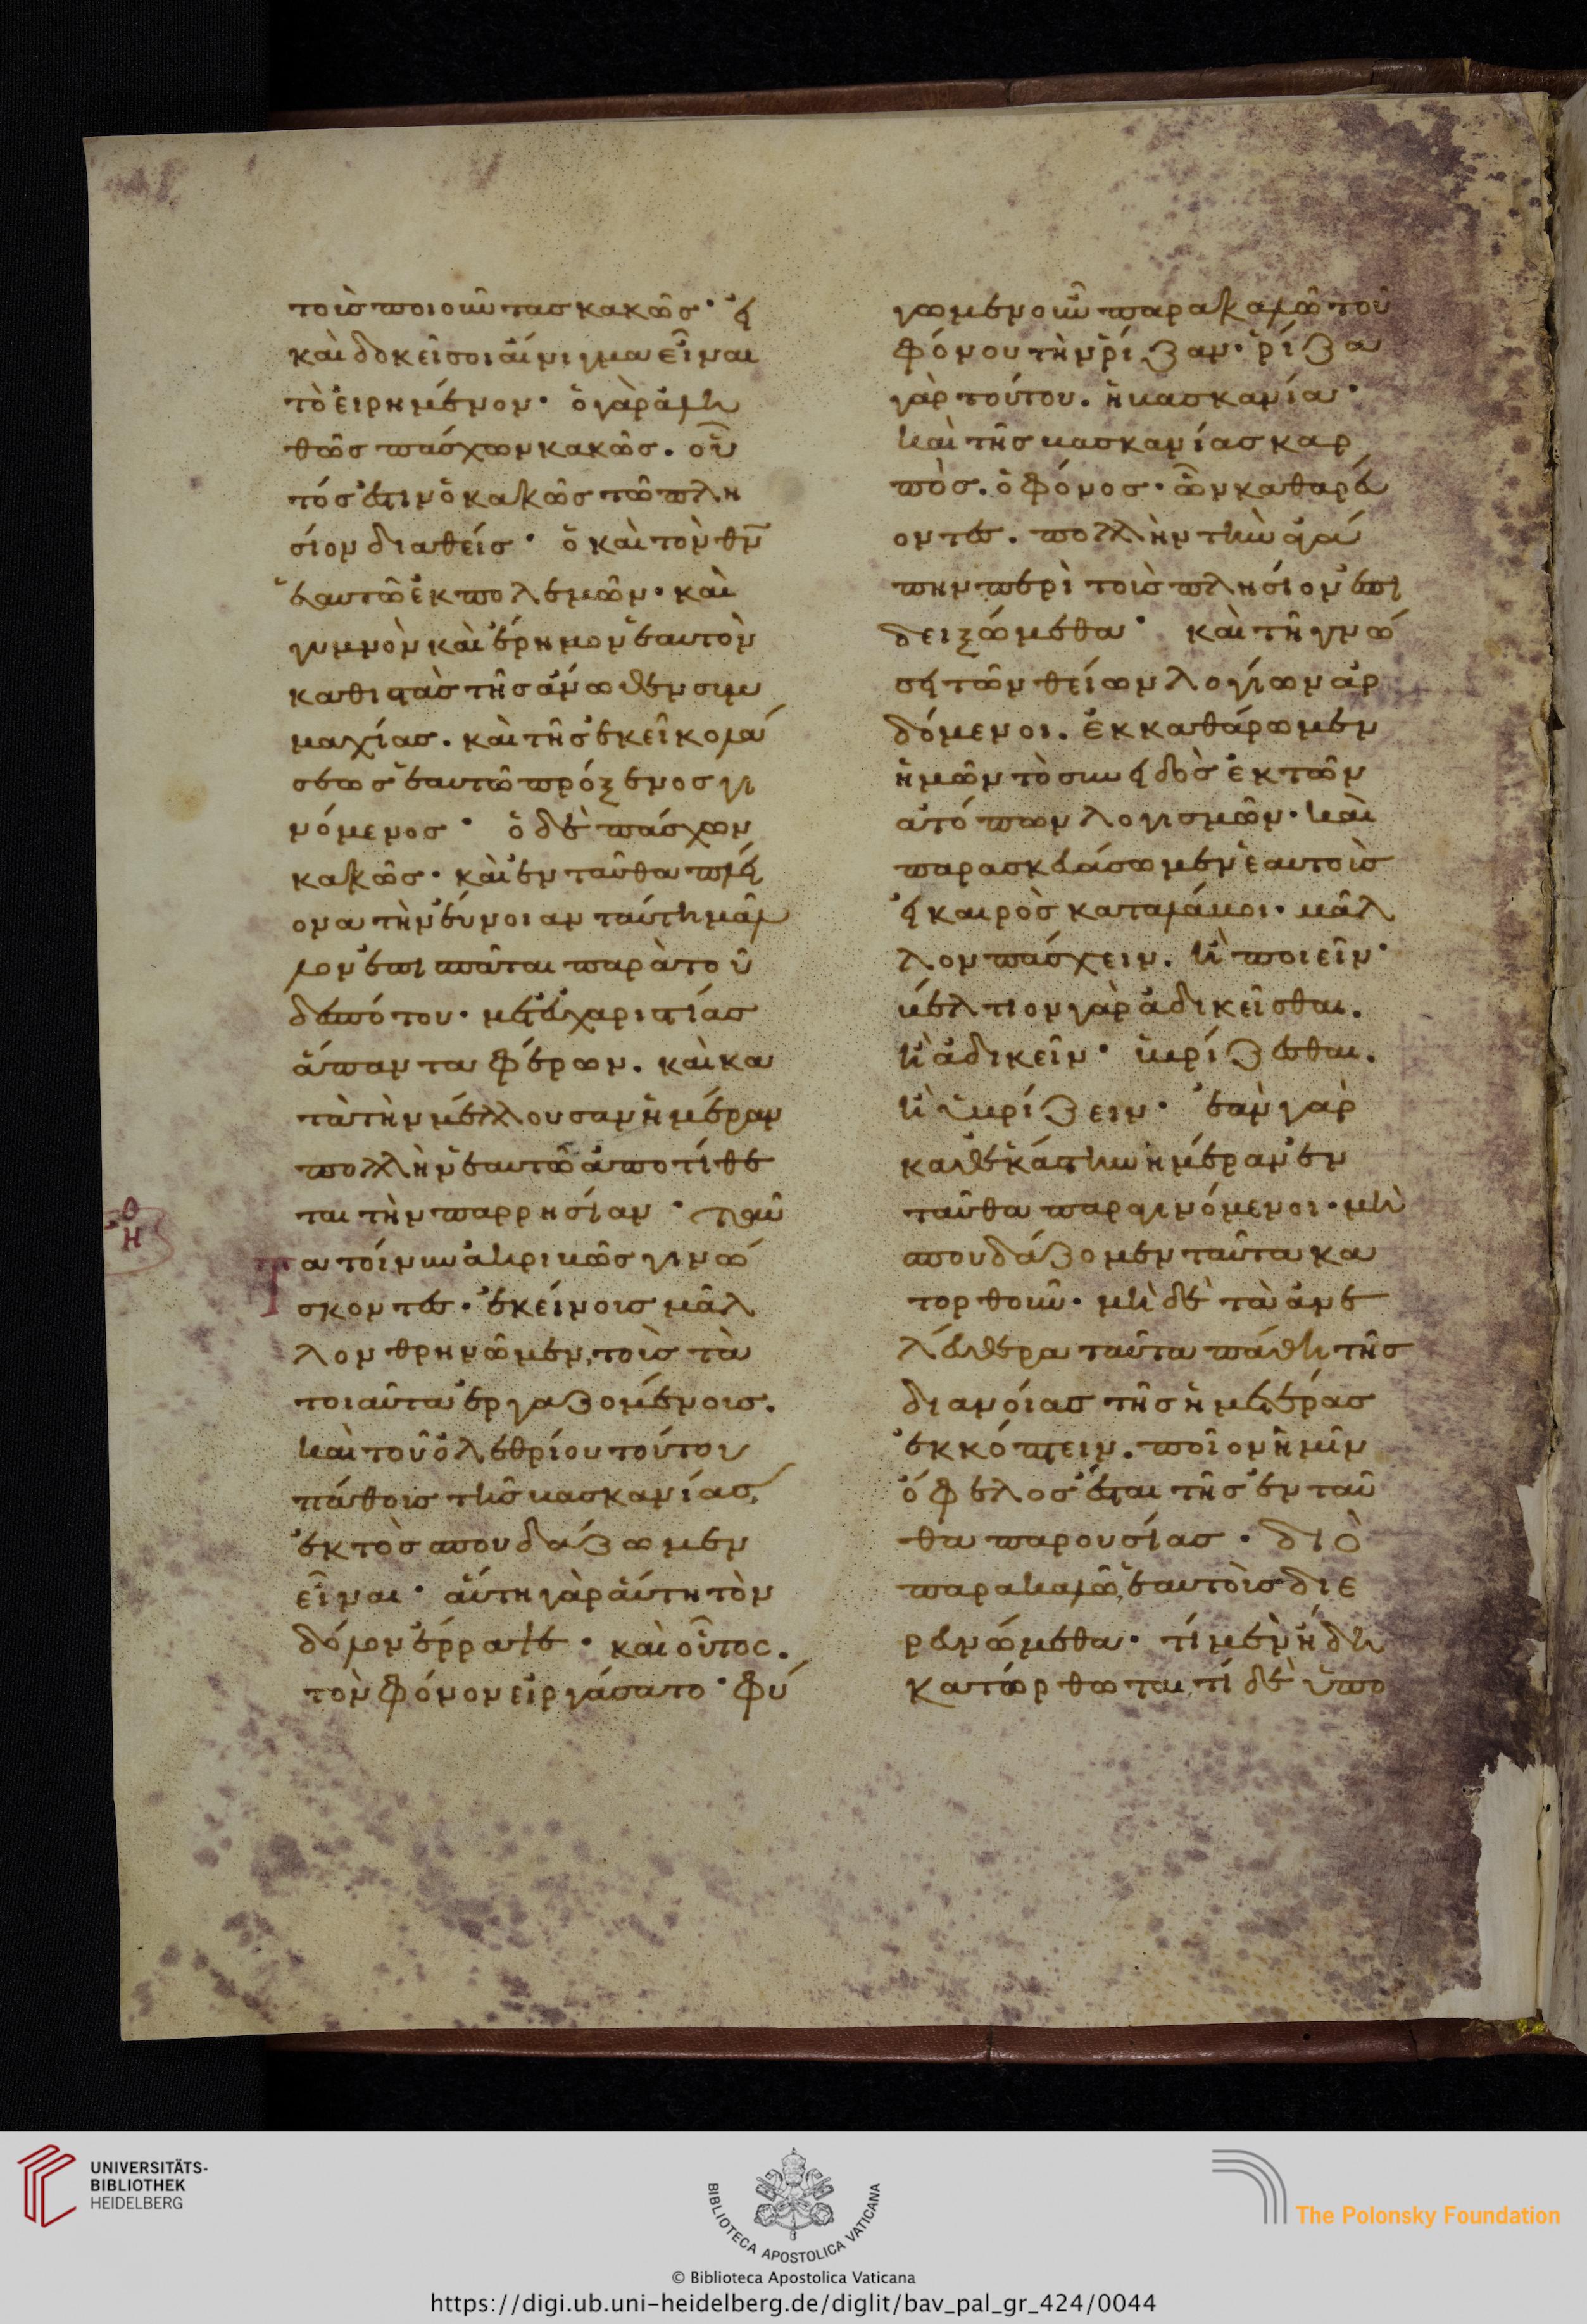 τοὺς ποιοῦντας κακῶς· εἰ
καὶ δοκεῖ σοι αἴνιγμα εἶναι
τὸ εἰρημένον· ὁ γὰρ ἀλη
θῶς πάσχων κακῶς. οὗ
τός ἐστιν ὁ κακῶς τῶ πλη
σίον διαθείς· ὁ καὶ τὸν θν
ἑαυτῶ ἐκπολεμῶν· καὶ
γυμνὸν καὶ ἔρημον ἑαυτὸν
καθιστὰς τῆς ἄνωθεν συμ
μαχίας. καὶ τῆς ἐκεῖ κολά
σεως ἑαυτῶ πρόξενος γι
νόμενος· ὁ δὲ πάσχων
κακῶς· καὶ ἐνταῦθα πλεί
ονα τὴν εὔνοιαν ταύτη μᾶλ
λον ἐπισπᾶται παρὰ τοῦ
δεσπότου· μετ' εὐχαριστίας
ἅπαντα φέρων. καὶ κα
τὰ τὴν μέλλουσαν ἡμέραν
πολλὴν ἑαυτῶ ἀποτίθε
ται τὴν παρρησίαν· ταῦ
ΟΗ
τα τοίνυν ἀκριβῶς γινώ
σκοντες· ἐκείνοις μᾶλ
λον θρηνῶμεν, τοὺς τὰ
τοιαῦτα ἐργαζομένοις.
καὶ τοῦ ὀλεθρίου τούτου
πάθους τῆς βασκανίας,
ἐκτὸς σπουδάζωμεν
εἶναι· αὕτη γὰρ αὕτη τὸν
δόλον ἔρραψε· καὶ οὗτος.
τὸν φόνον εἰργάσατο· φύ
γωμεν οὖν παρακαλῶ τοῦ
φόνου τὴν ῥίζαν· ῥίζα
γὰρ τούτου. ἡ βασκανία·
καὶ τῆς βασκανίας καρ
πὸς. ὁ φόνος· ὧν καθαρεύ
οντες. πολλὴν τὴν ἀγά
πην περὶ τοὺς πλησίον ἐπι
δειξώμεθα· καὶ τῆ γνώ
σει τῶν θείων λογίων ἀρ
δόμενοι. ἐκκαθάρωμεν
ἡμῶν τὸ συνειδὸς ἐκ τῶν
ἀτόπων λογισμῶν· καὶ
παρασκευάσωμεν ἑαυτοὺς
εἰ καιρὸς καταλάβοι· μᾶλ
λον πάσχειν. ἢ ποιεῖν·
βέλτιον γὰρ ἀδικεῖσθαι.
ἢ ἀδικεῖν· ὑβρίζεσθαι.
ἢ ὑβρίζειν· ἐὰν γὰρ
καθ' ἑκάστην ἡμέραν ἐν
ταῦθα παραγινόμενοι· μὴ
σπουδάζομεν ταῦτα κα
τορθοῦν· μὴ δὲ τὰ ἀνε
λεύθερα ταῦτα πάθη τῆς
διανοίας τῆς ἡμετέρας
ἐκκόπτειν. ποῖον ἡμῖν
ὄφελος ἔσται τῆς ἐνταῦ
θα παρουσίας· διὸ
παρακαλῶ, ἑαυτοὺς διε
ρευνώμεθα· τί μὲν ἤδη
κατώρθωται, τί δὲ ὑπο
UNIVERSITÄTS-
BIBLIOTHEK
HEIDELBERG
BIBLIOTECA APOSTOLICA VATICANA
The Polonsky Foundation
© Biblioteca Apostolica Vaticana
https://digi.ub.uni-heidelberg.de/diglit/bav_pal_gr_424/0044